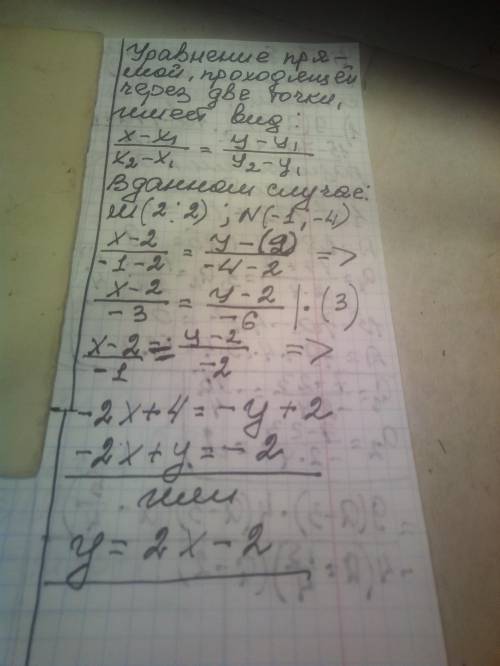 Уравнение пря-
мой, проходящей
через две точки,
имеет вид:
x-x₁/x₂-x₁ = y-y₁/y₂-y₁
В данном случае:
M(2;2) ; N(-1,-4)
x-2/-1-2 = y-(2)/-4-2 =>
x-2/-3 = y-2/-6 |·(3)
x-2/-1 = y-2/-2 =>
-2x+4=-y+2
-2x+y=-2
или
y=2x-2